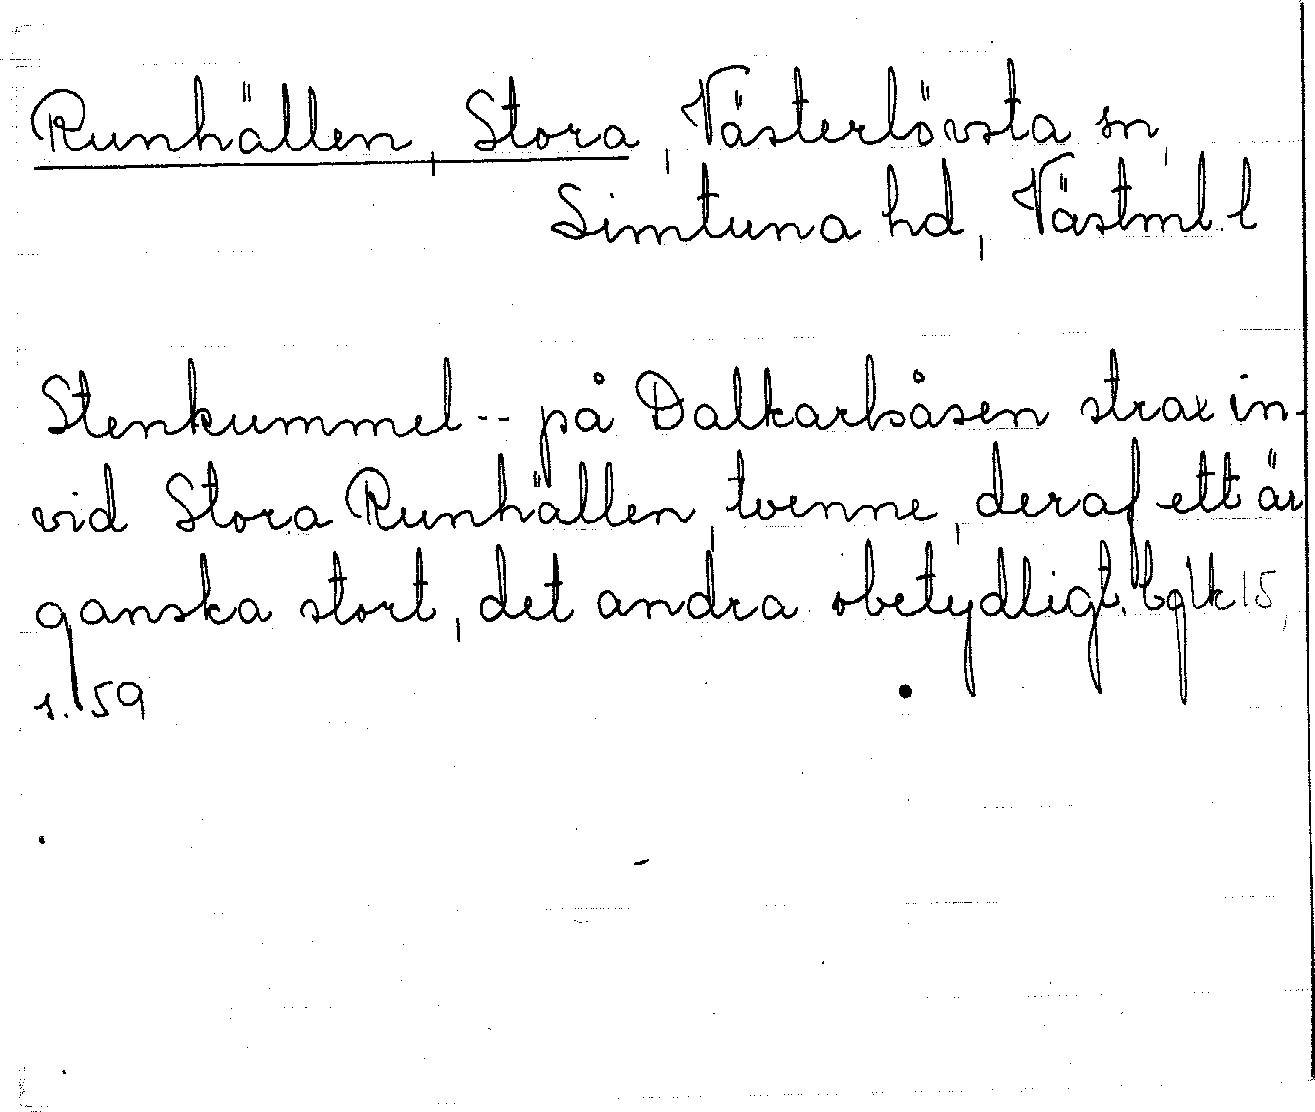 Runhällen, Stora, Västerlövsta sn,
Simtuna hd, Västml. l
Stenkummel -- på Dalkarlsåsen strax in-
vid Stora Runhällen, tvenne, deraf ett är
ganska stort, det andra obetydligt. 15,
s. 59